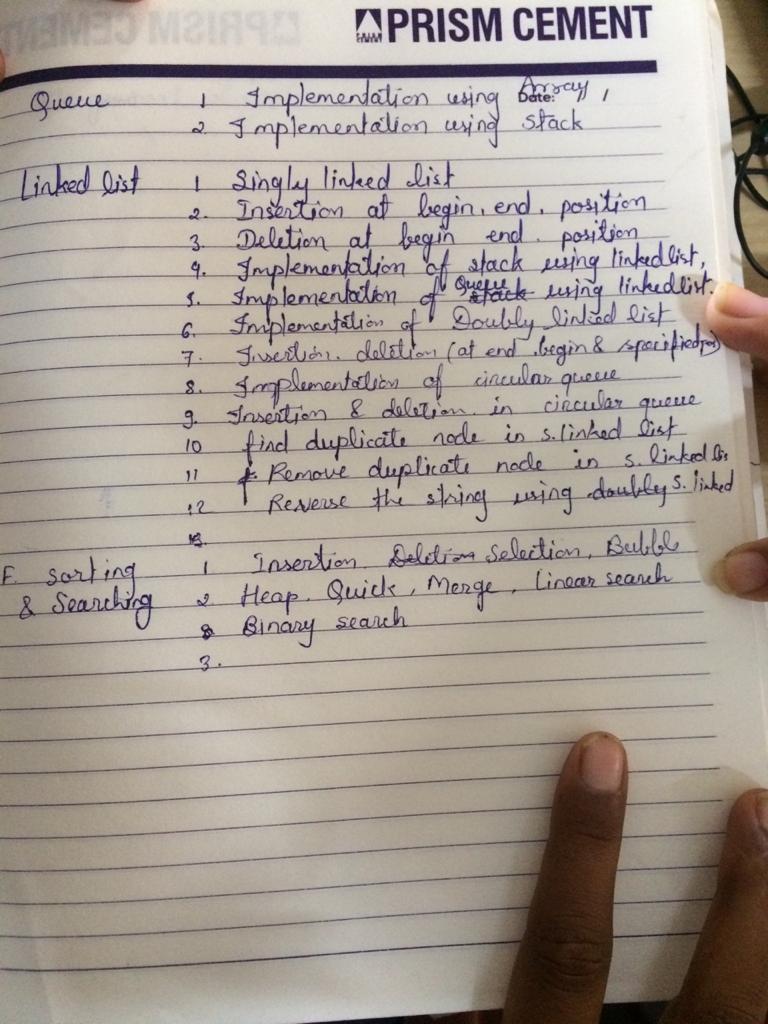 PRISM CEMENT
Queue 1 Implementation using Array
Date: /
2 Implementation using stack
Linked list 1 Singly linked list
2. Insertion at begin, end, position
3. Deletion at begin end. position
4. Implementation of stack using linkedlist,
5. Implementation of Queue stack using linkedlist.
6. Implementation of Doubly linked list
7. Insertion, deletion (at end begin & specified pos)
8. Implementation of circular queue
9. Insertion & deletion in circular queue
10 find duplicate node in s. linked list
11 Remove duplicate node in s. linked lis
12 Reverse the string using doubly s. linked
13
F. sorting 1 Insertion Deletion Selection, Bubble
& Searching 2. Heap, Quick, Merge, Linear search
Binary search
3.